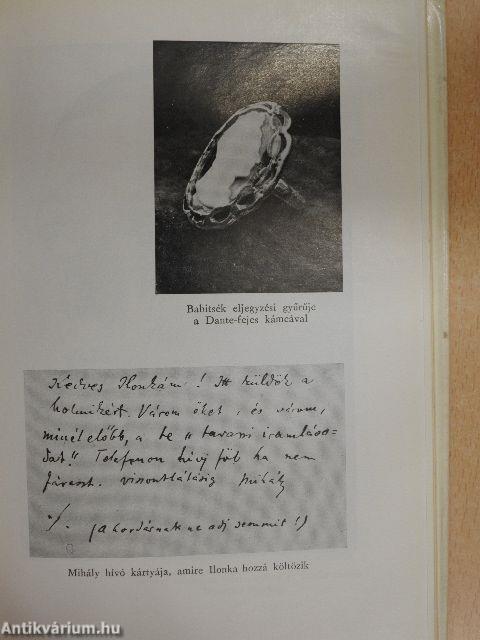 Babitsék eljegyzési gyűrűje
a Dante-fejes kámeával
Kedves Ilonkám! Itt küldök a
holmikért. Várom őket, és várom,
minél előbb, a te „tavaszi iramláso-
dat." Telefonon hívj föl ha nem
fáraszt. viszontlátásig Mihály
·/. (a hordásnak ne adj semmit!)
Mihály hívó kártyája, amire Ilonka hozzá költözik
Antikvárium.hu